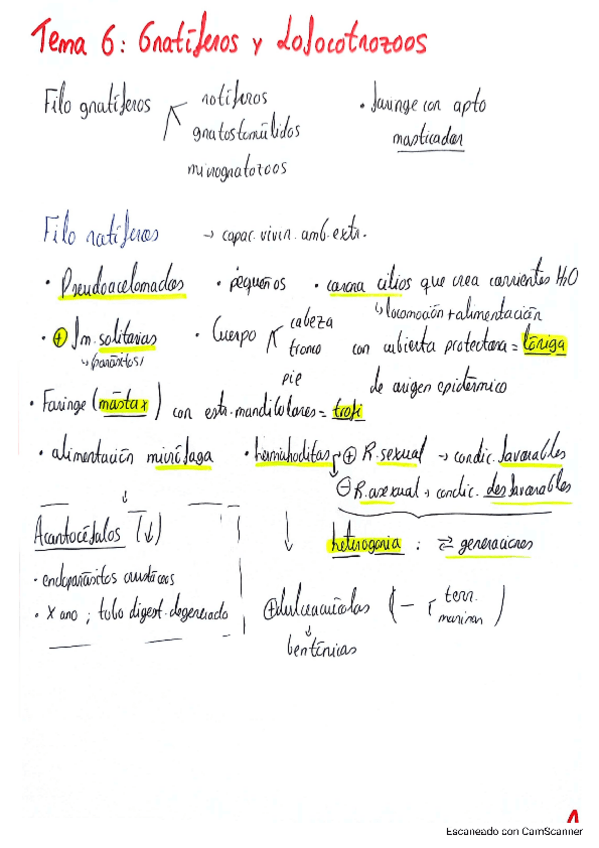 Tema 6: Gnatíferos y Lofocotrozoos
Filo gnatíferos
rotíferos
gnatostomúlidos
micrognatozoos
• faringe con apto
masticador
Filo rotíferos → capac. vivir. amb. extr.
• Pseudoacelomados • pequeños • corona cilios que crea corrientes H2O
↳ locomoción + alimentación
• ⊕ Im. solitarias
↳ (parásitos)
• Cuerpo
cabeza
tronco
pie
con cubierta protectora = lóriga
de origen epidérmico
• Faringe (mástax) con estr. mandibulares = trofi
• alimentación micrófaga • hermafroditas ⊕ R. sexual → condic. favorables
⊖ R. asexual → condic. desfavorables
↓
heterogonia : ⇄ generaciones
Acantocéfalos (↓)
• endoparásitos crustáceos
• X ano ; tubo digest. degenerado
⊕ dulceacuícolas (−
terr.
marinas
)
↓
bentónicas
1
Escaneado con CamScanner